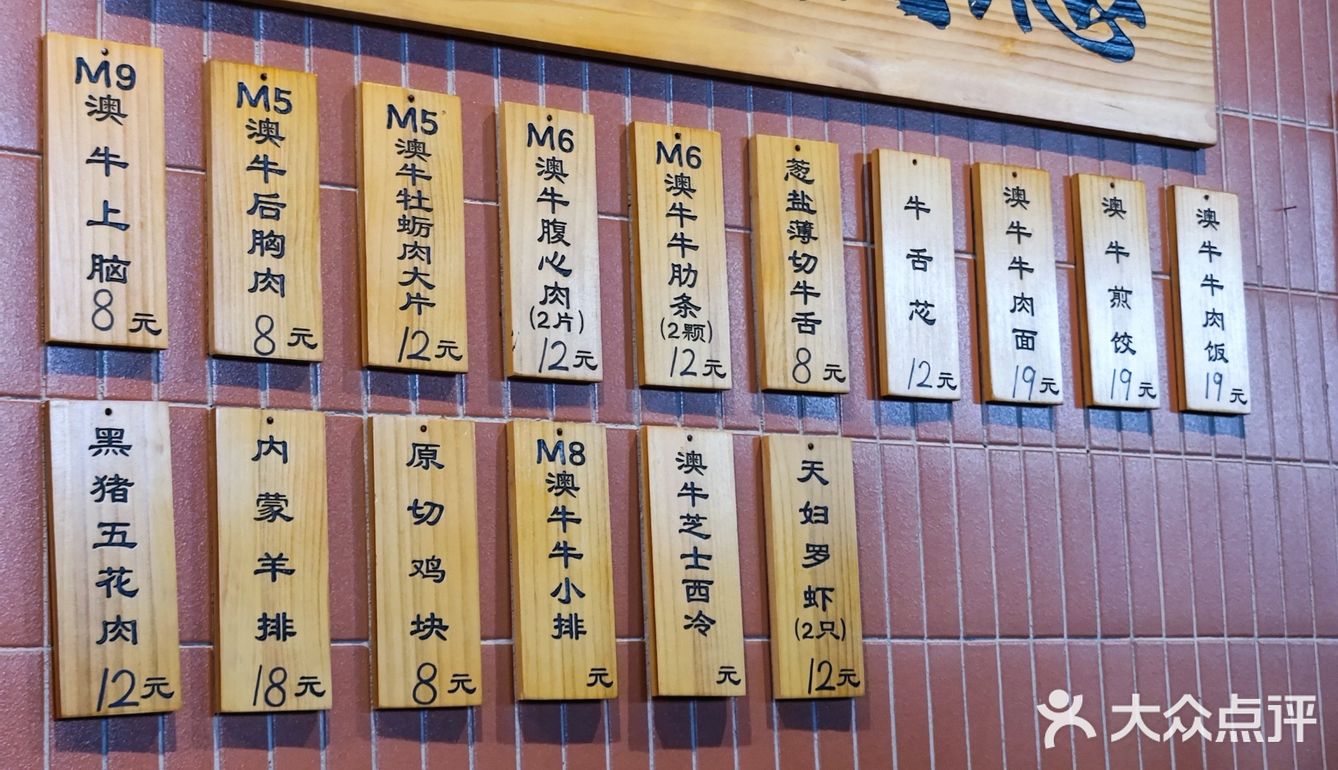 M9澳牛上脑
8元
M5澳牛后胸肉
8元
M5澳牛牡蛎肉大片
12元
M6澳牛腹心肉
(2片)
12元
M6澳牛牛肋条
(2颗)
12元
葱盐薄切牛舌
8元
牛舌芯
12元
澳牛牛肉面
19元
澳牛煎饺
19元
澳牛牛肉饭
19元
黑猪五花肉
12元
内蒙羊排
18元
原切鸡块
8元
M8澳牛牛小排
元
澳牛芝士西冷
元
天妇罗虾
(2只)
12元
大众点评